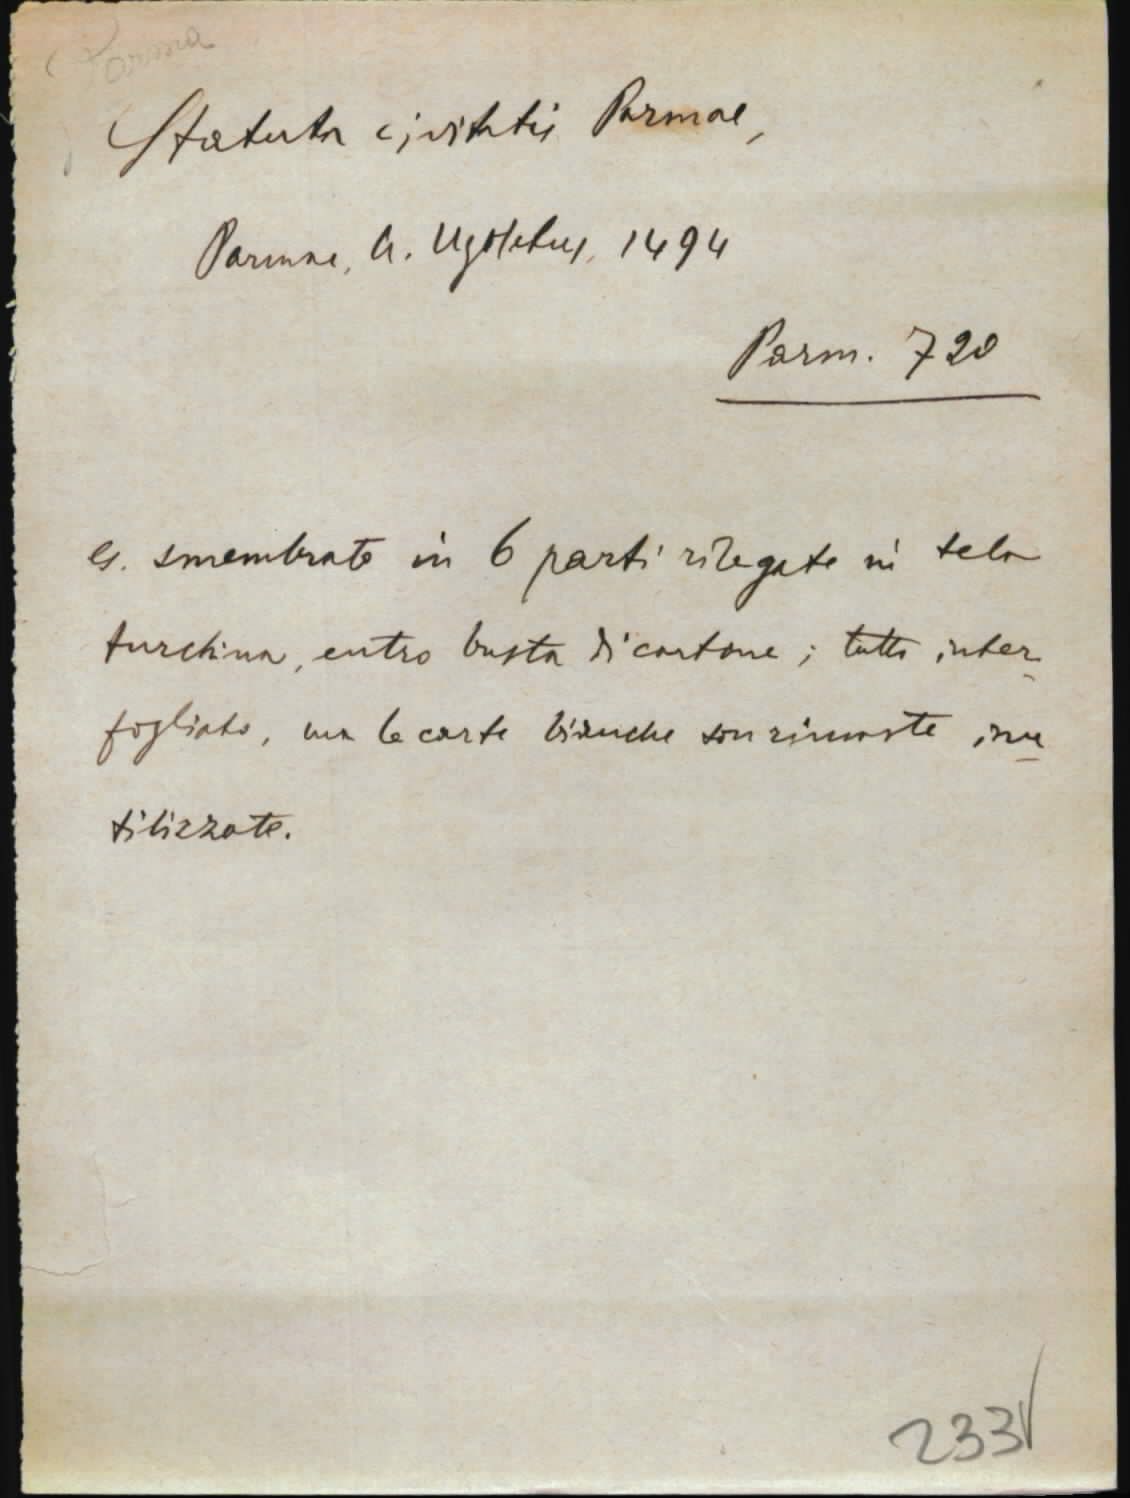 Parma
Statuta civitatis Parmae,
Parmae, A. Ugoletus, 1494
Parm. 720
es. smembrato in 6 parti rilegate in tela
turchina, entro busta di cartone; tutto inter-
fogliato, ma le carte bianche son rimaste inu-
tilizzate.
233